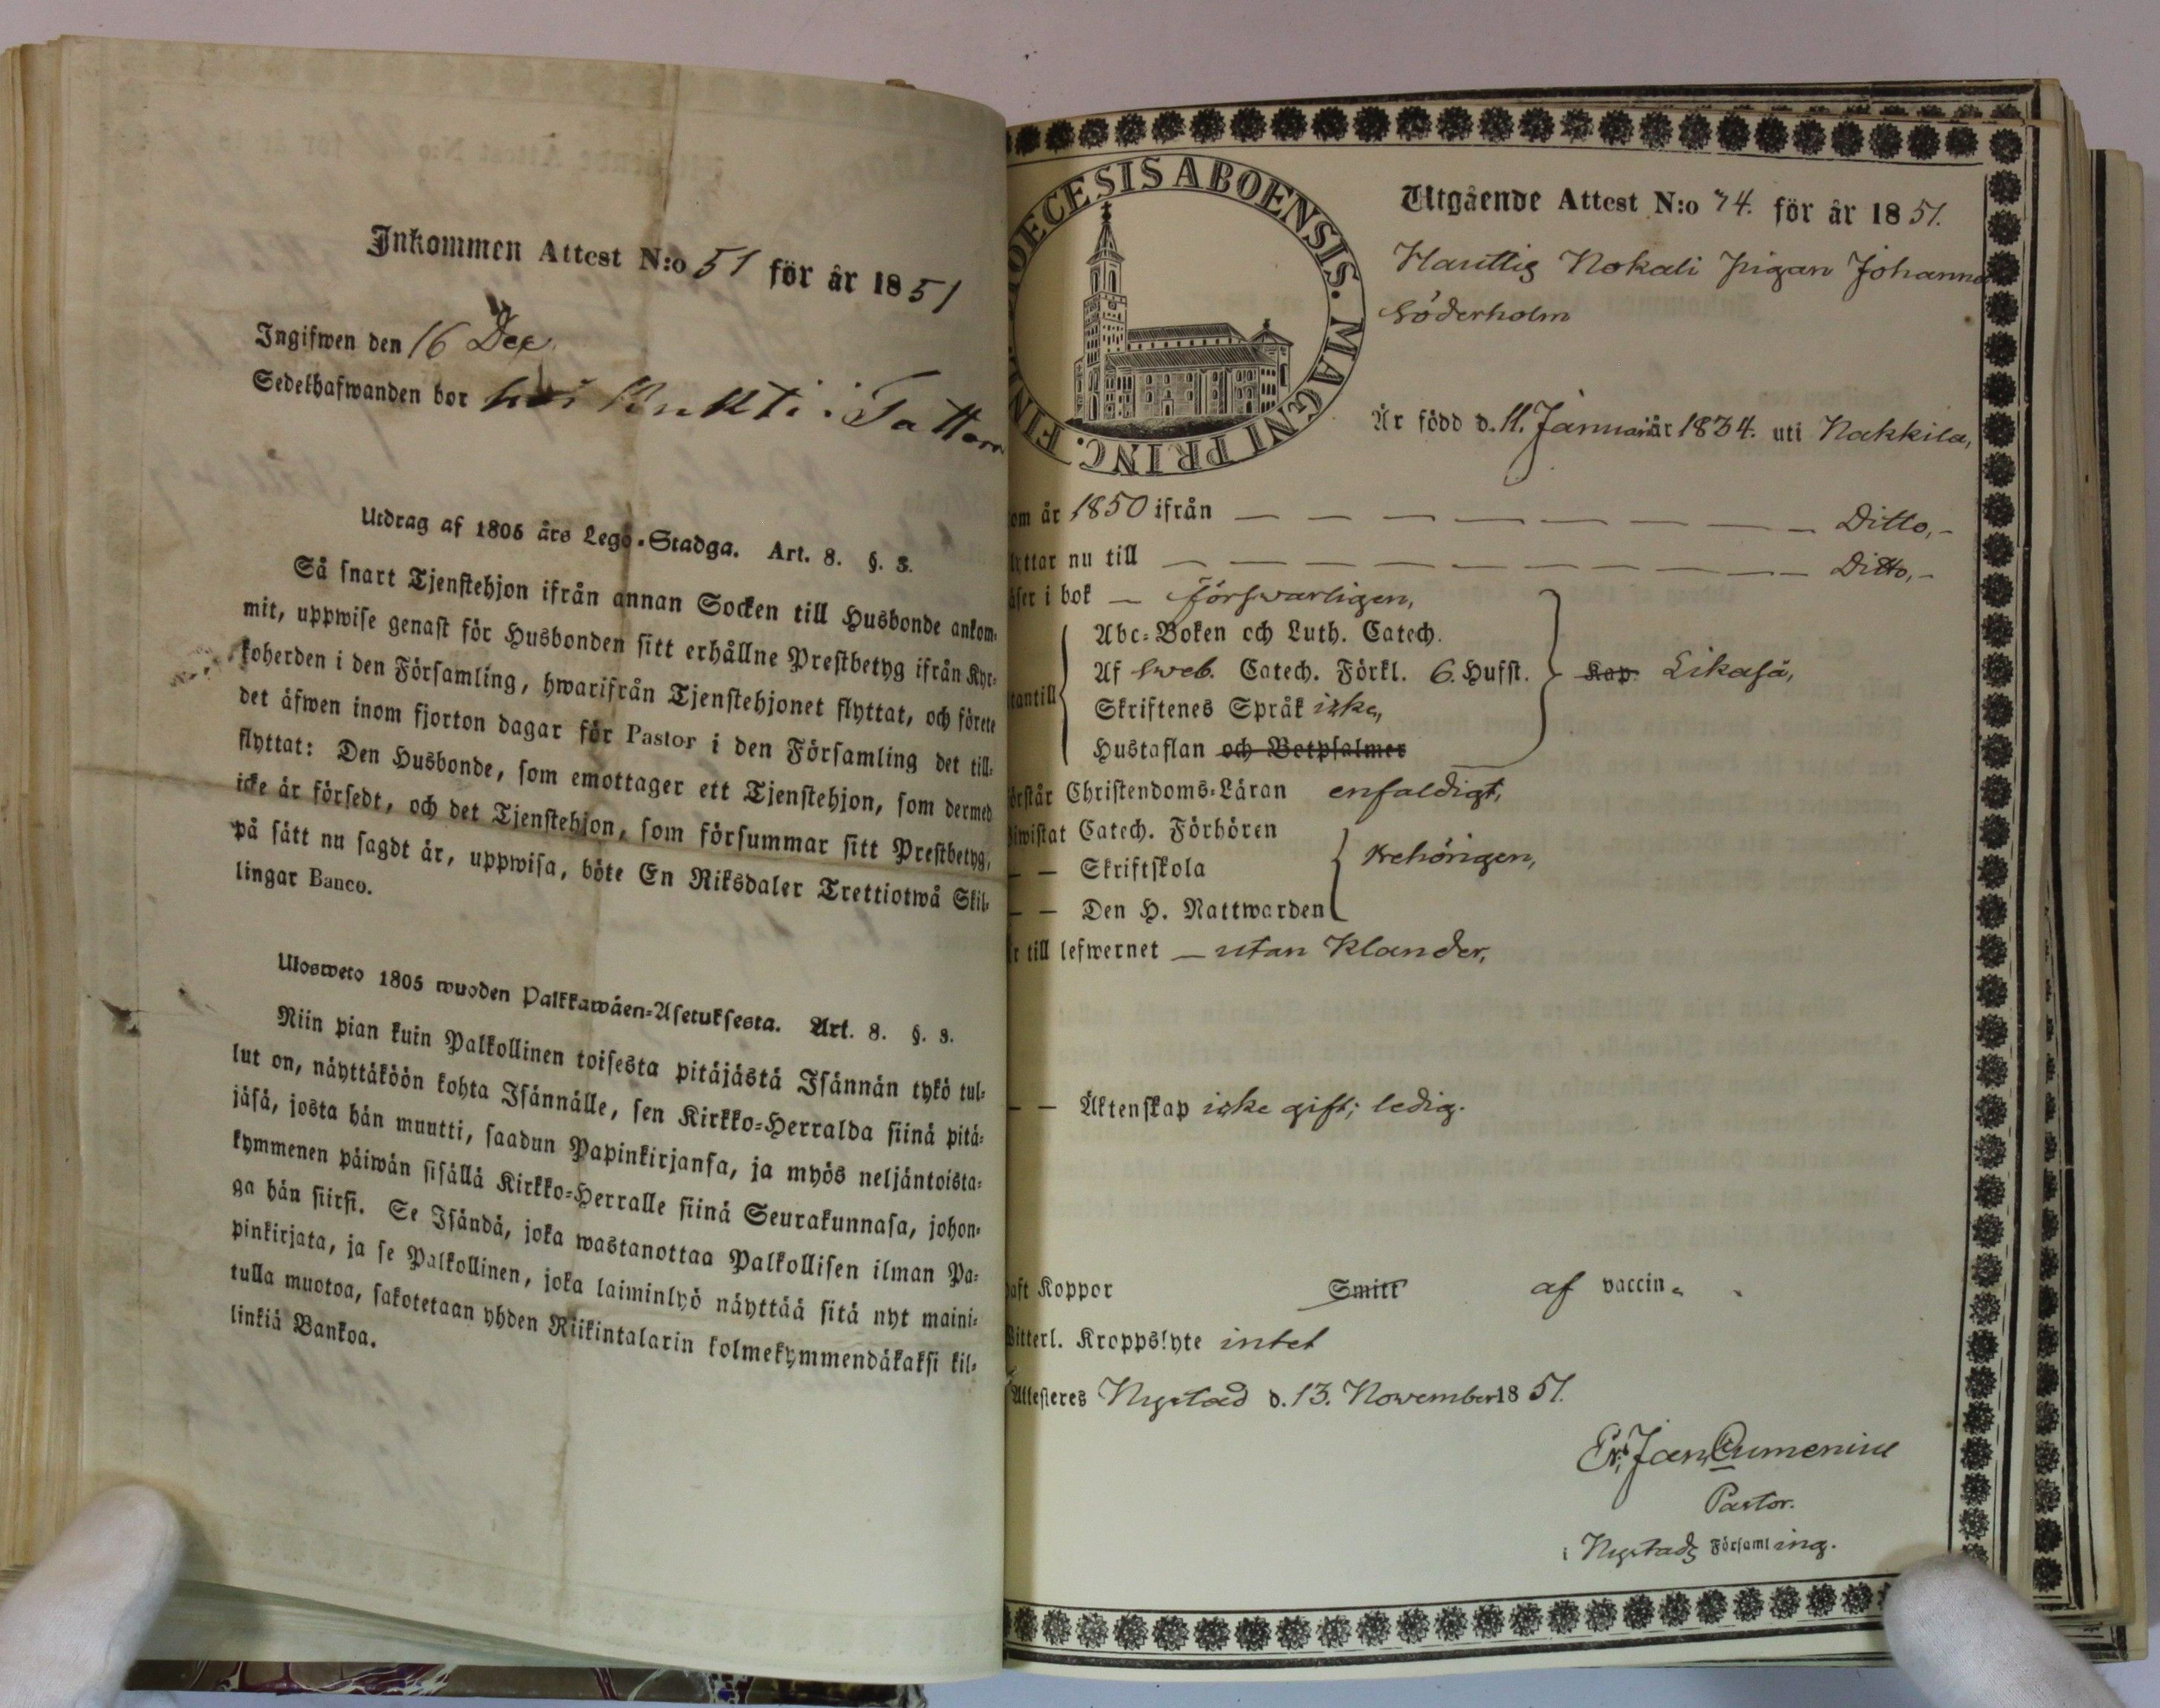 Inkommen Attest N:o 51 för år 1851
Ingifwen den 16 Dec
Sedelhafwanden bor hos Kukti i Tattara
Utdrag af 1805 års Lego-Stadga. Art. 8. §. 3.
Så snart Tjenstehjon ifrån annan Socken till Husbonde ankom-
mit, uppwise genast för Husbonden sitt erhållne Prestbetyg ifrån Kyr-
koherden i den Församling, hwarifrån Tjenstehjonet flyttat, och förete
det äfwen inom fjorton dagar för Pastor i den Församling det till-
flyttat: Den Husbonde, som emottager ett Tjenstehjon, som dermed
icke är försedt, och det Tjenstehjon, som försummar sitt Prestbetyg,
på sätt nu sagdt är, uppwisa, böte En Riksdaler Trettiotwå Skil-
lingar Banco.
Ulosweto 1805 wuoden Palkkawäen-Asetuksesta. Art. 8. §. 3.
Niin pian kuin Palkollinen toisesta pitäjästä Isännän tykö tul-
lut on, näyttäköön kohta Isännälle, sen Kirkko-Herralda siinä pitä-
jäsä, josta hän muutti, saadun Papinkirjansa, ja myös neljäntoista-
kymmenen päiwän sisällä Kirkko-Herralle siinä Seurakunnasa, johon-
ga hän siirsi. Se Isändä, joka wastanottaa Palkollisen ilman Pa-
pinkirjata, ja se Palkollinen, joka laiminlyö näyttää sitä nyt maini-
tulla muotoa, sakotetaan yhden Riikintalarin kolmekymmendäkaksi kil-
linkiä Bankoa.
DIOECESIS ABOENSIS. MAGNI PRINC. FINL.
Utgående Attest N:o 74. för år 1851.
Nokali pigan Johanna
Söderholm
Är född d. 11. Januari år 1834. uti Nakkila,
om år 1850 ifrån — — — — — — — Ditto,-
yttar nu till — — — — — — — — Ditto,-
äser i bok — försvarligen,
Abc-Boken och Luth. Catech.
Af Sveb. Catech. Förkl. 6. Hufst. Kap. Likaså,
utantill Skriftenes Språk icke,
Hustaflan och Botpsalmer
örstår Christendoms-Läran enfaldigt,
iwistat Catech. Förhören
— — Skriftskola behörigen,
— — Den H. Nattwarden
r till lefwernet — utan klander,
— — Äktenskap icke gift; ledig.
aft Koppor Smitt af vaccin.
itterl. Kroppslyte intet
Attesteres Nystad d. 13. November 1851.
Er. Jan. Cumenius
Pastor.
i Nystads Församling.